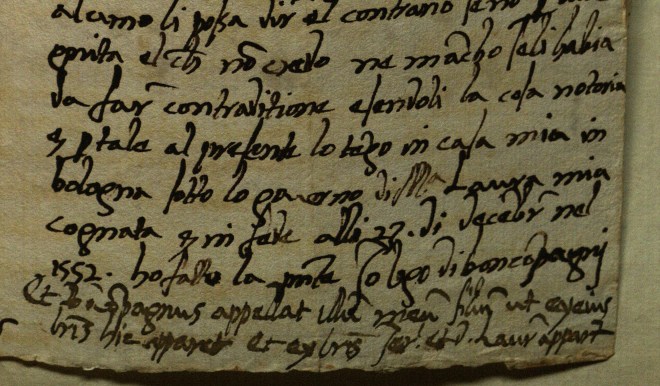 alcuno li possa dir el contrario se no p
gnita el ch no credo ne mancho seli habia
da far contraditione esendoli la cosa notoria
et p tale al presente lo tego in casa mia in
bologna sotto lo governo di Ma Laura mia
cognata et in fede alli 27. di decebr nel
1552. ho fatto la pnte Io Ugo di boncopagnij
Et appellat illu meu filiu ut ex eius
lris hic apparet et ex lris et d. Laur appart